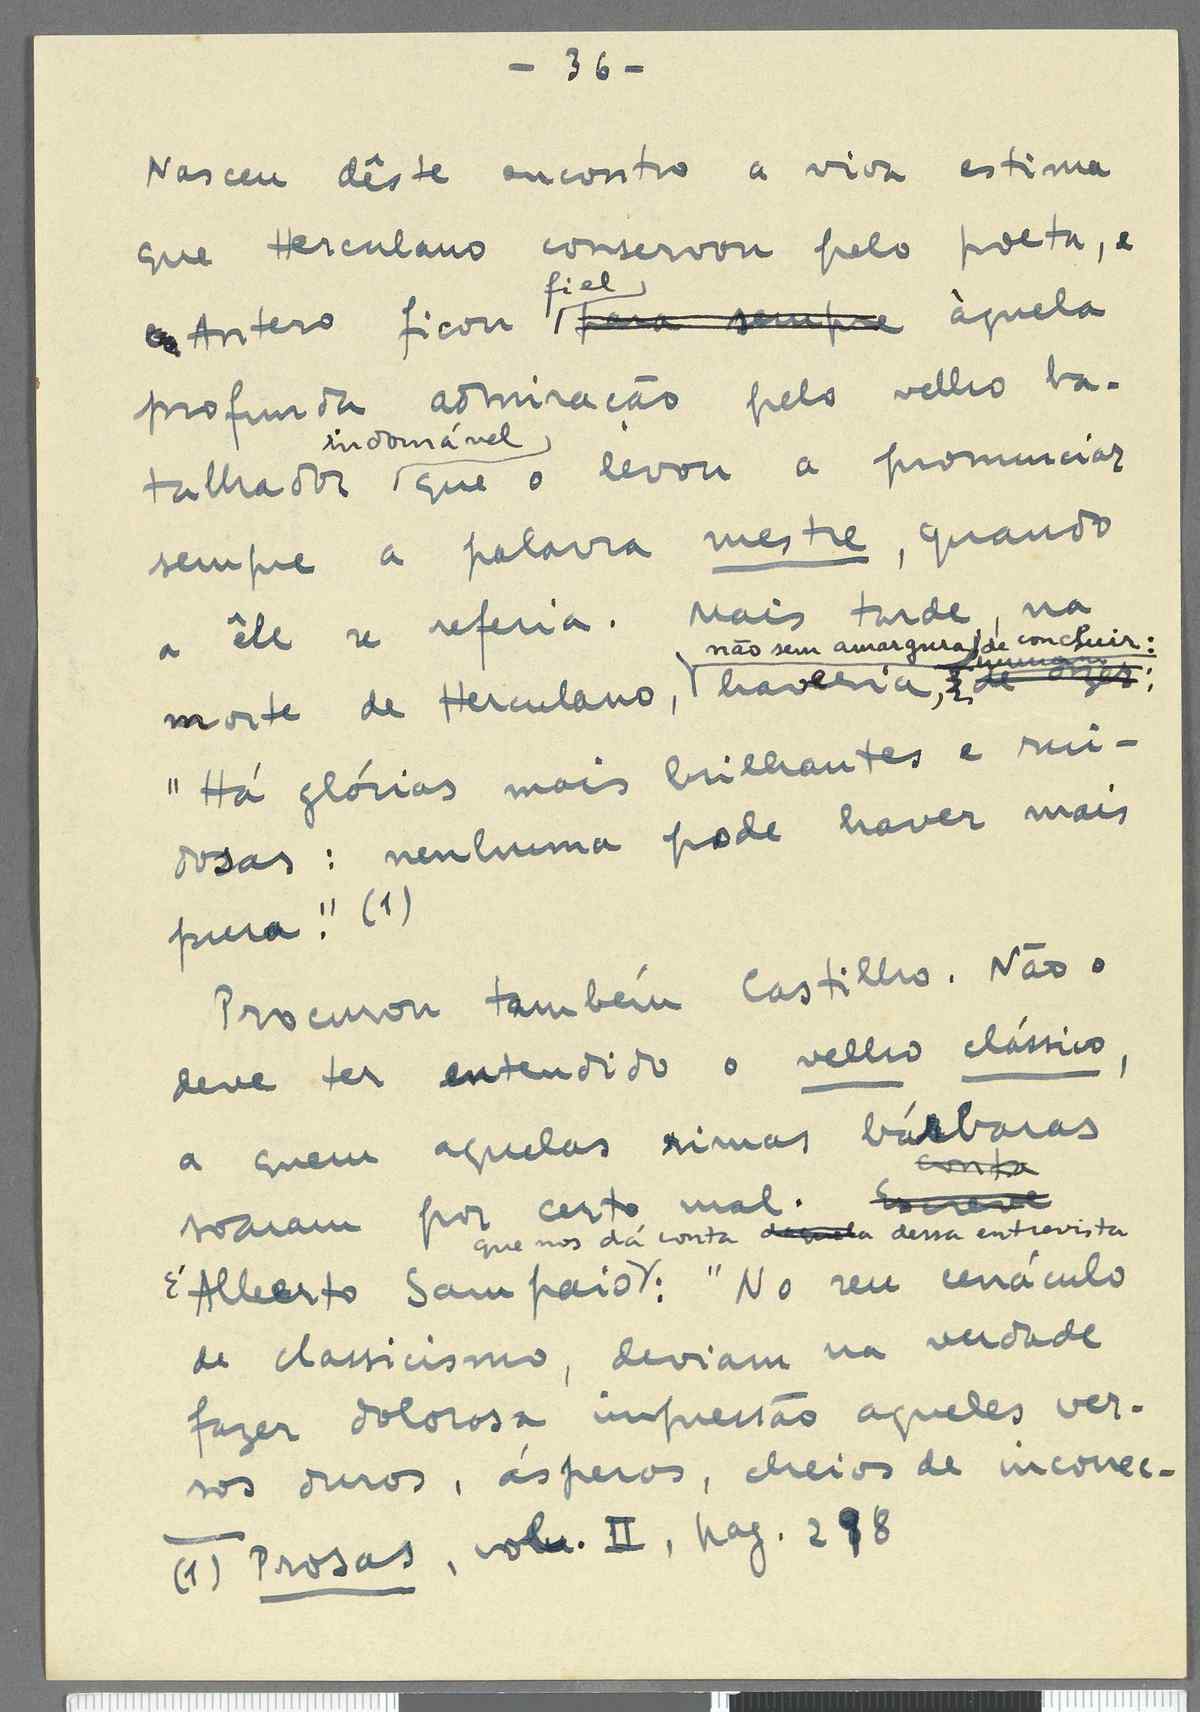 - 36 -
Nasceu dêste encontro a viva estima
que Herculano conservou pelo poeta, e
fiel
a Antero ficou para sempre àquela
profunda admiração pelo velho ba-
indomável
talhador que o levou a pronunciar
sempre a palavra mestre, quando
a êle se referia. Mais tarde, na
não sem amargura, de concluir:
morte de Herculano, haveria, de dizer:
"Há glórias mais brilhantes e rui-
dosas: nenhuma pode haver mais
pura!" (1)
Procurou também Castilho. Não o
deve ter entendido o velho clássico,
a quem aquelas rimas bárbaras
conta
soaram por certo mal. Escreve
que nos dá conta daquela dessa entrevista
É Alberto Sampaio: "No seu cenáculo
de classicismo, deviam na verdade
fazer dolorosa impressão aqueles ver-
sos duros, ásperos, cheios de incorrec-
(1) Prosas, vol. II, pag. 298